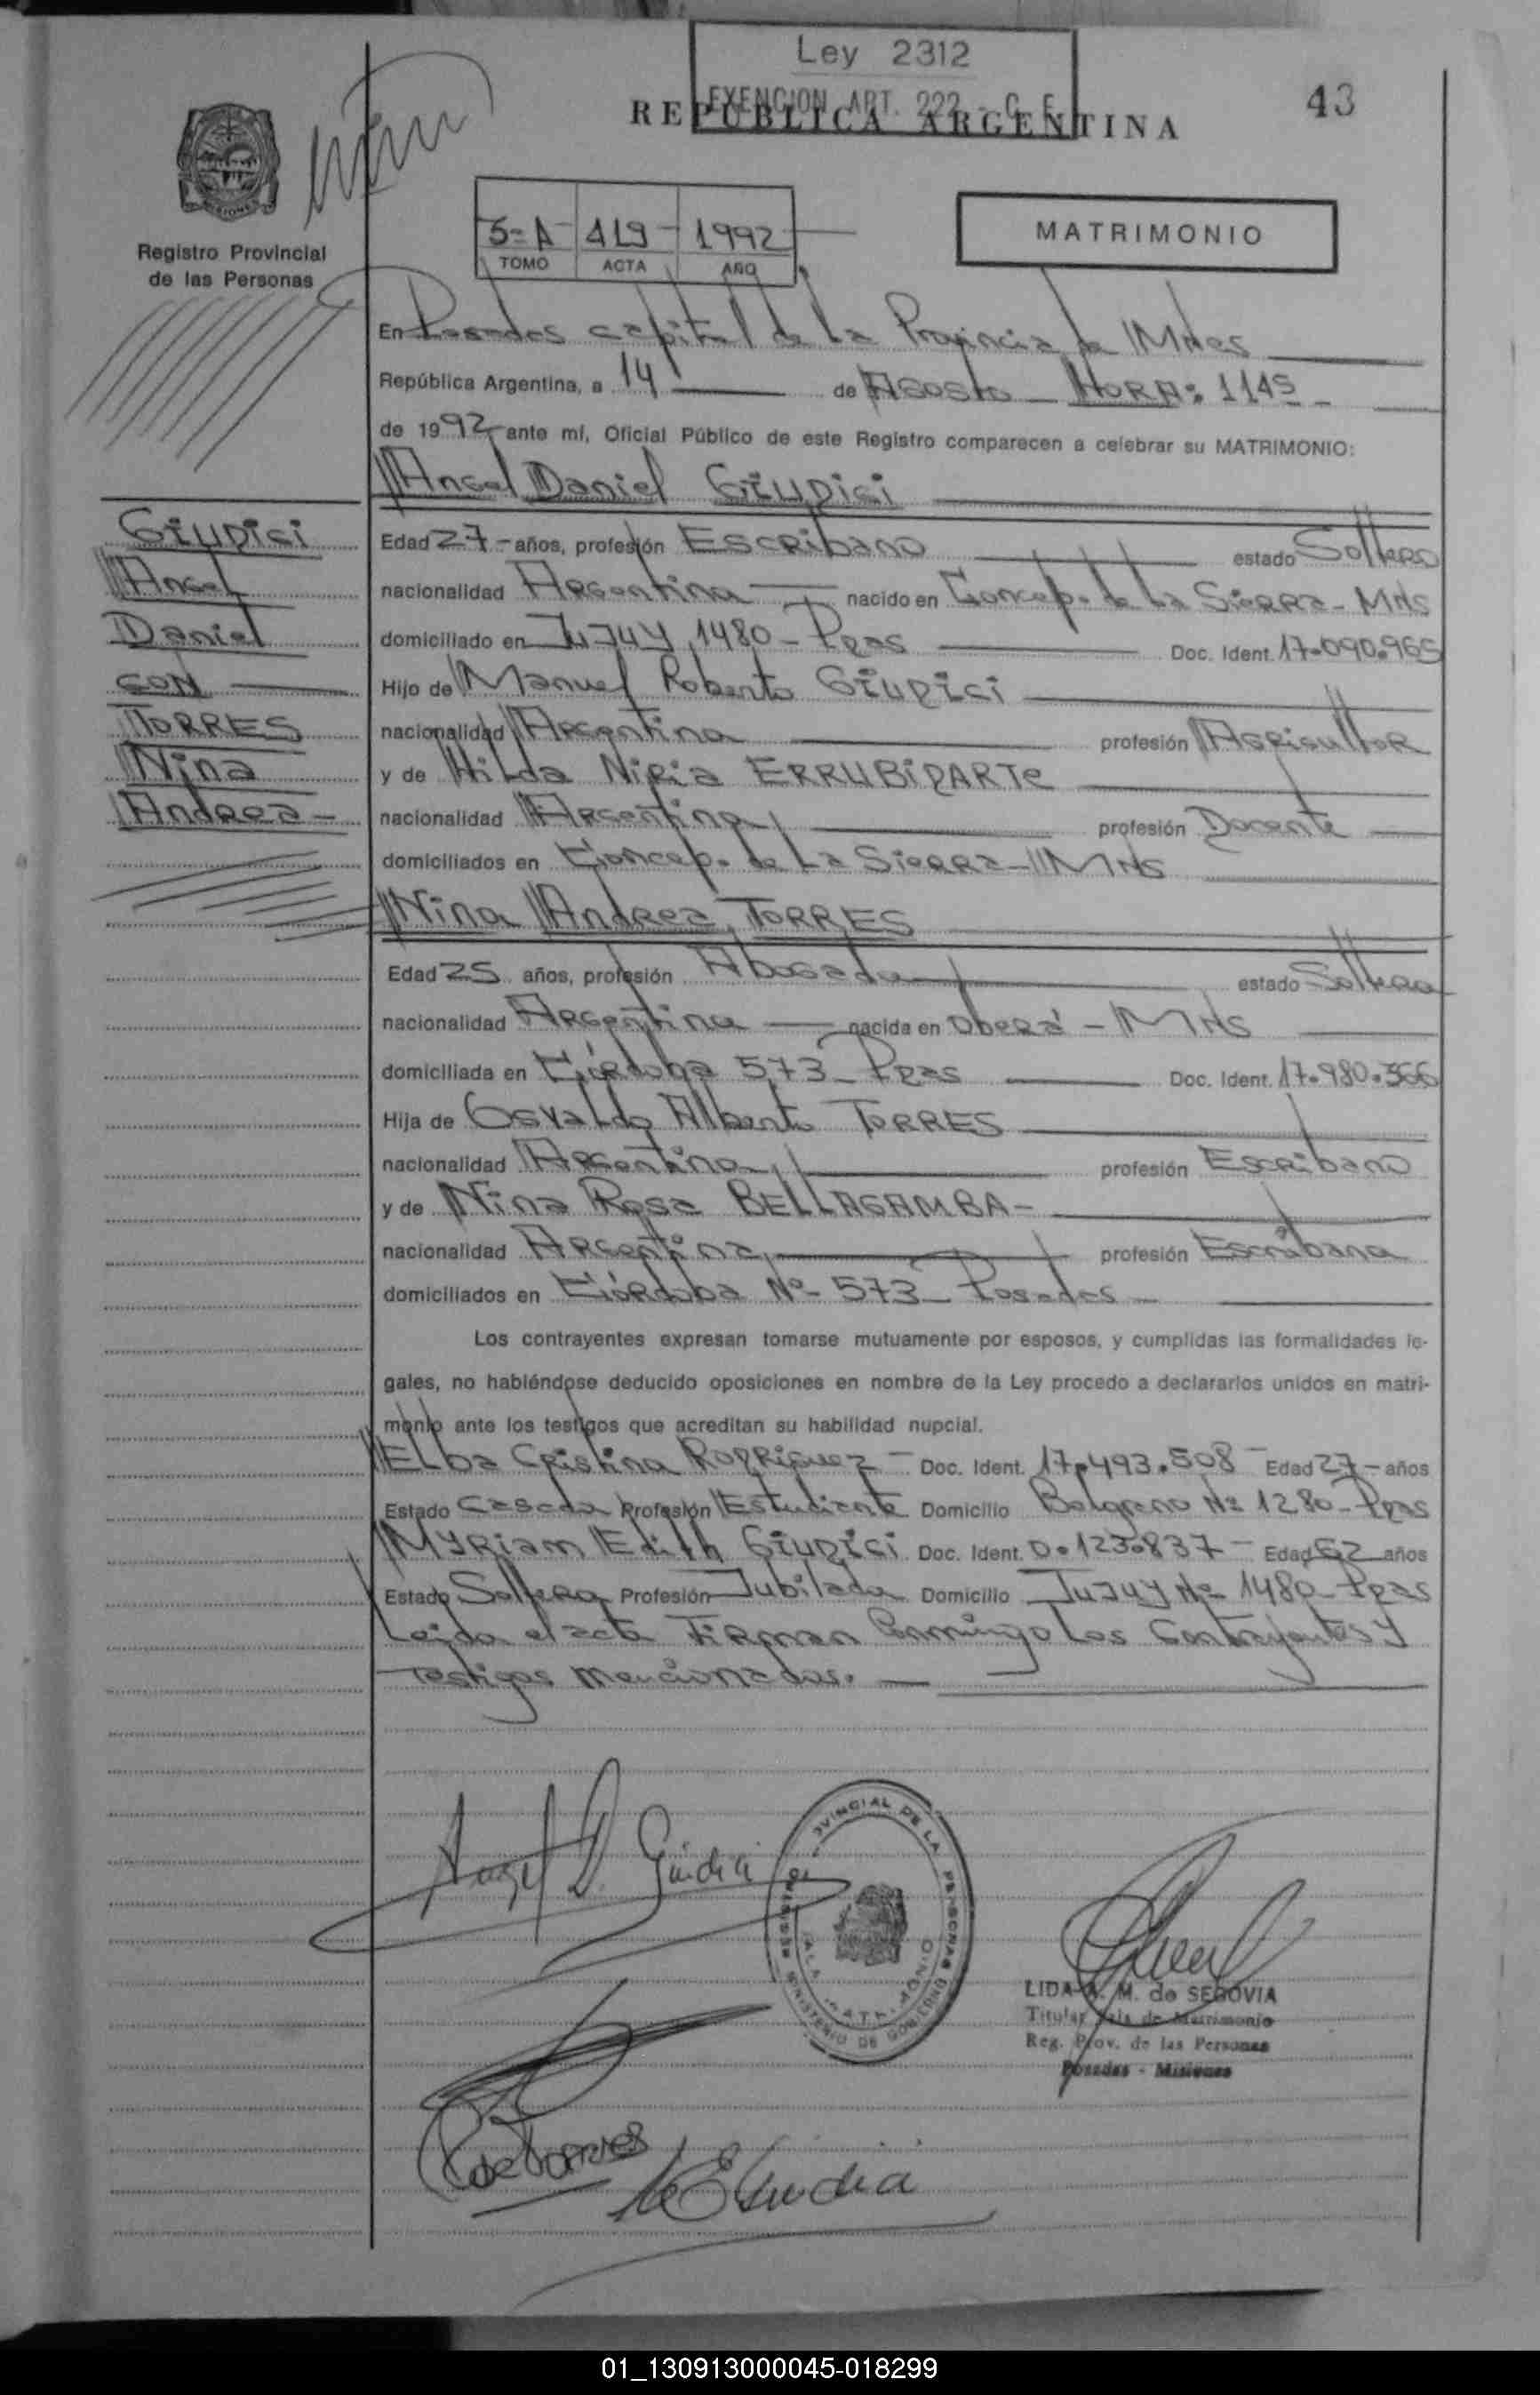 Ley 2312
EXENCION ART. 222 - C. F.
REPUBLICA ARGENTINA
43
Registro Provincial
de las Personas
5=A 419 1992
TOMO ACTA AÑO
MATRIMONIO
En Posadas capital de la Provincia de Mnes
República Argentina, a 14 de Agosto HORA: 1145
de 1992 ante mí, Oficial Público de este Registro comparecen a celebrar su MATRIMONIO:
Angel Daniel GIUDICI
GIUDICI
Angel
Daniel
CON
TORRES
Nina
Andrea -
Edad 27 - años, profesión Escribano estado Soltero
nacionalidad Argentina nacido en Concep. de La Sierra - Mns
domiciliado en Jujuy 1480 - Pdas Doc. Ident. 17.090.965
Hijo de Manuel Roberto GIUDICI
nacionalidad Argentina profesión Agricultor
y de Hilda Niria ERRUBIDARTE
nacionalidad Argentina profesión Docente
domiciliados en Concep. de La Sierra - Mns
Nina Andrea TORRES
Edad 25 años, profesión Abogada estado Soltera
nacionalidad Argentina nacida en Oberá - Mns
domiciliada en Córdoba 573 - Pdas Doc. Ident. 17.980.366
Hija de Osvaldo Alberto TORRES
nacionalidad Argentina profesión Escribano
y de Nina Rosa BELLAGAMBA -
nacionalidad Argentina profesión Escribana
domiciliados en Córdoba Nº - 573 - Posadas -
Los contrayentes expresan tomarse mutuamente por esposos, y cumplidas las formalidades le-
gales, no habiéndose deducido oposiciones en nombre de la Ley procedo a declararlos unidos en matri-
monio ante los testigos que acreditan su habilidad nupcial.
Elba Cristina Rodriguez - Doc. Ident. 17.493.508 - Edad 27 - años
Estado Casada Profesión Estudiante Domicilio Belgrano Nº 1280 - Pdas
Myriam Edith GIUDICI Doc. Ident. 0.123.837 - Edad 62 años
Estado Soltera Profesión Jubilada Domicilio Jujuy Nº 1480 - Pdas
Leida el acta Firman Conmigo Los Contrayentes y
Testigos Mencionados.
Angel D. Giudici
LIDA A. M. de SEGOVIA
Titular Sala de Matrimonio
Reg. Prov. de las Personas
Posadas - Misiones
01_130913000045-018299